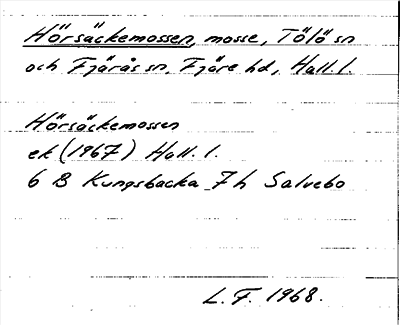 Hörsäckemossen, mosse, Tölö sn
och Fjärås sn, Fjäre hd, Hall. l.
Hörsäckemossen
ek (1967) Hall. l.
6 B Kungsbacka 7h Salvebo
L. F. 1968.